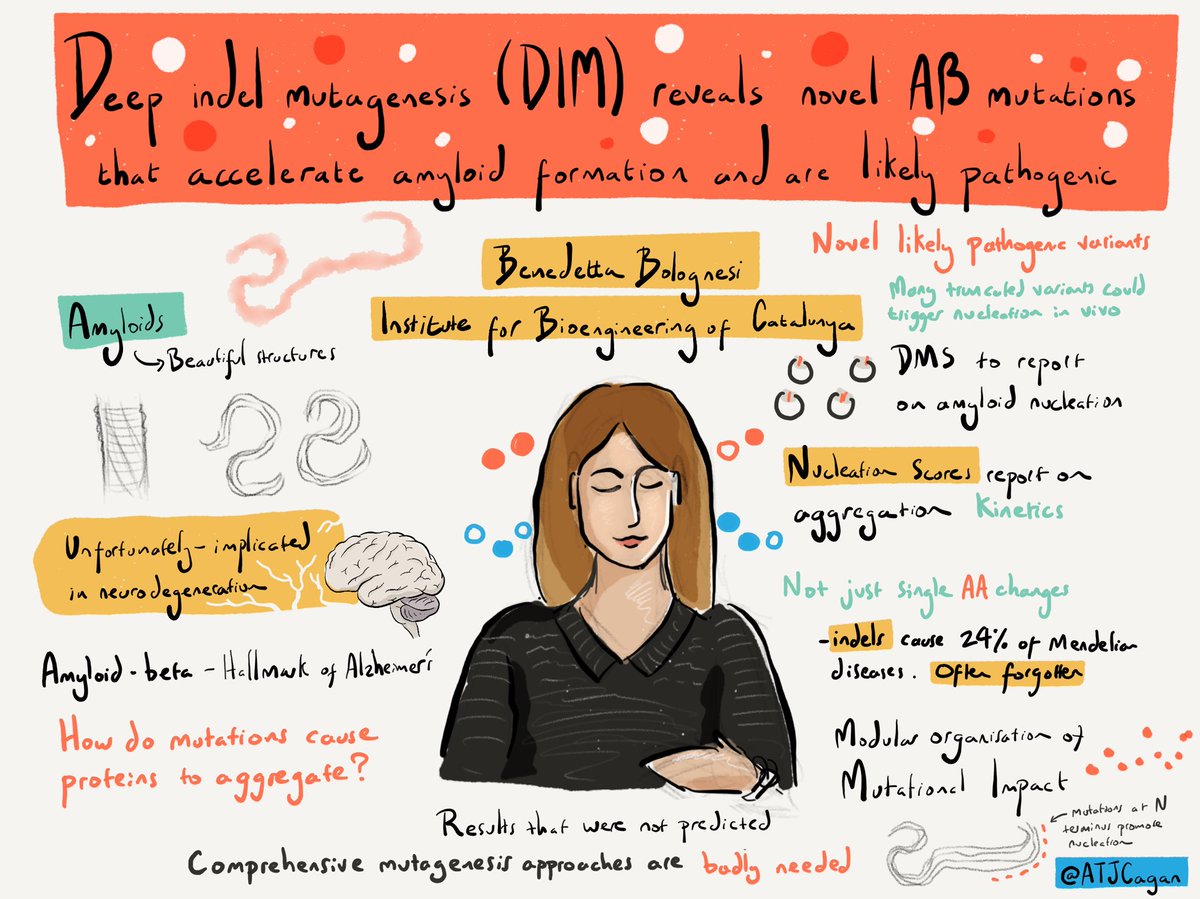 Deep indel mutagenesis (DIM) reveals novel AB mutations
that accelerate amyloid formation and are likely pathogenic
Benedetta Bolognesi
Institute for Bioengineering of Catalunya
Amyloids
Beautiful structures
Unfortunately - implicated
in neurodegeneration
Amyloid-beta - Hallmark of Alzheimer's
How do mutations cause
proteins to aggregate?
Novel likely pathogenic variants
Many truncated variants could
trigger nucleation in vivo
DMS to report
on amyloid nucleation
Nucleation Scores report on
aggregation Kinetics
Not just single AA changes
-indels cause 24% of Mendelian
diseases. Often forgotten
Modular organisation of
Mutational Impact
Mutations at N
terminus promote
nucleation
Results that were not predicted
Comprehensive mutagenesis approaches are badly needed
@ATJCagan